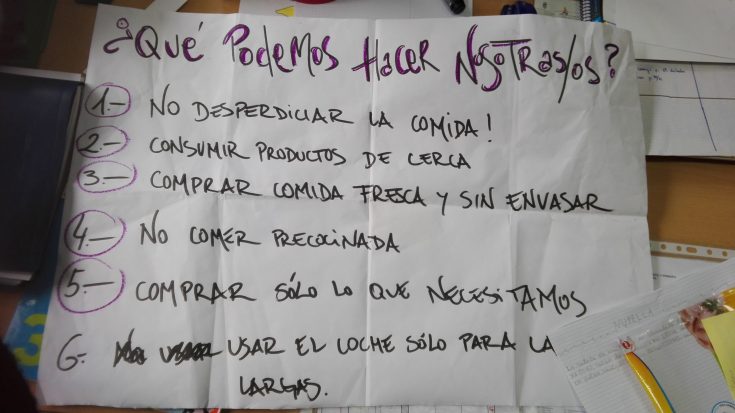 ¿QUÉ PODEMOS HACER NOSOTRAS/OS?
1.- NO DESPERDICIAR LA COMIDA!
2.- CONSUMIR PRODUCTOS DE CERCA
3.- COMPRAR COMIDA FRESCA Y SIN ENVASAR
4.- NO COMER PRECOCINADA
5.- COMPRAR SÓLO LO QUE NECESITAMOS
6.- USAR EL COCHE SÓLO PARA LA
LARGAS.